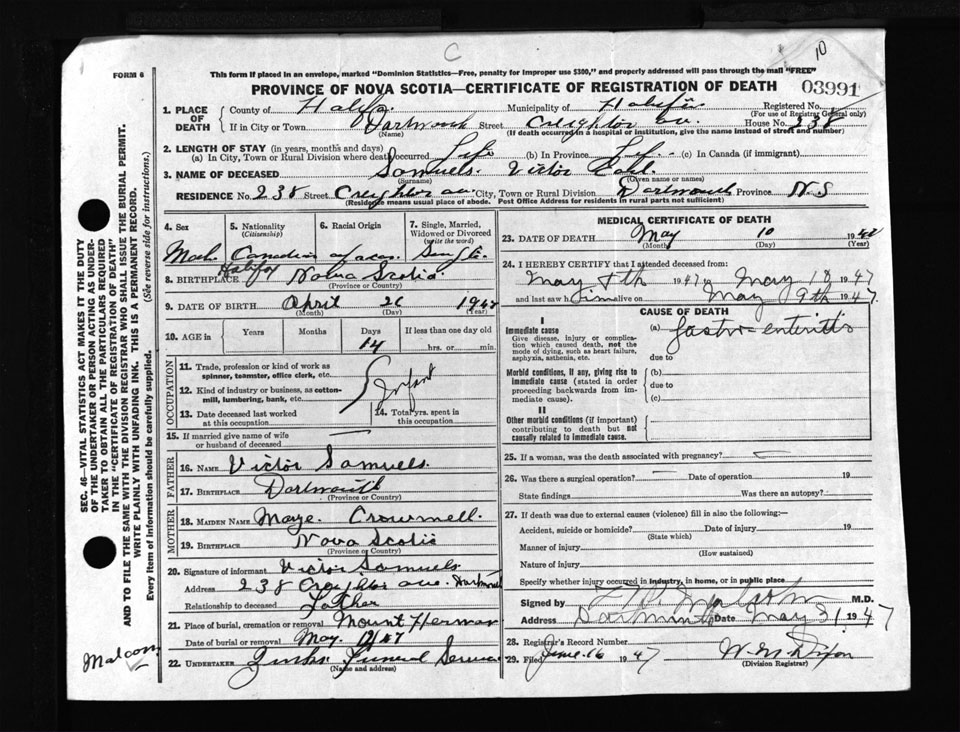 C
10
FORM 6
This form if placed in an envelope, marked "Dominion Statistics—Free, penalty for improper use $300," and properly addressed will pass through the mail "FREE"
PROVINCE OF NOVA SCOTIA—CERTIFICATE OF REGISTRATION OF DEATH 03991
1. PLACE OF DEATH County of Halifax Municipality of Halifax Registered No.
(For use of Registrar General only)
If in City or Town Dartmouth Street Creighton av. House No. 238
(Name) (If death occurred in a hospital or institution, give the name instead of street and number)
2. LENGTH OF STAY (in years, months and days)
(a) In City, Town or Rural Division where death occurred Life (b) In Province Life - (c) In Canada (if immigrant)
3. NAME OF DECEASED Samuels. Victor
(Surname) (Given name or names)
RESIDENCE No. 238 Street Creighton av. City, Town or Rural Division Dartmouth Province N.S
(Residence means usual place of abode. Post Office Address for residents in rural parts not sufficient)
4. Sex 5. Nationality (Citizenship) 6. Racial Origin 7. Single, Married, Widowed or Divorced (write the word)
Male Canadian Single
8. BIRTHPLACE Halifax Nova Scotia
(Province or Country)
9. DATE OF BIRTH April 26 194
(Month) (Day) (Year)
10. AGE in Years Months Days If less than one day old
14 hrs. or min.
OCCUPATION
11. Trade, profession or kind of work as spinner, teamster, office clerk, etc.
12. Kind of industry or business, as cotton-mill, lumbering, bank, etc.
Infant
13. Date deceased last worked at this occupation 14. Total yrs. spent in this occupation
15. If married give name of wife or husband of deceased —
FATHER
16. NAME Victor Samuels.
17. BIRTHPLACE Dartmouth
(Province or Country)
MOTHER
18. MAIDEN NAME Maye. Crowmell.
19. BIRTHPLACE Nova Scotia
(Province or Country)
20. Signature of informant Victor Samuels
Address 238 Creighton ave. Dartmouth
Relationship to deceased Father
21. Place of burial, cremation or removal Mount Hermon
Date of burial or removal May. 47
22. UNDERTAKER Zinks Funeral Service
(Name and address)
MEDICAL CERTIFICATE OF DEATH
23. DATE OF DEATH May 10 194
(Month) (Day) (Year)
24. I HEREBY CERTIFY that I attended deceased from
May 8th 1947 May 1947
and last saw him alive on May 9th 1947.
CAUSE OF DEATH
I
Immediate cause (a) Gastro-enteritis
Give disease, injury or complication which caused death, not the mode of dying, such as heart failure, asphyxia, asthenia, etc.
due to
Morbid conditions, if any, giving rise to immediate cause (stated in order proceeding backwards from immediate cause).
(b)
due to
(c)
II
Other morbid conditions (if important) contributing to death but not causally related to immediate cause.
25. If a woman, was the death associated with pregnancy? —
26. Was there a surgical operation? — Date of operation 19
State findings Was there an autopsy?
27. If death was due to external causes (violence) fill in also the following:—
Accident, suicide or homicide? Date of injury 19
(State which)
Manner of injury
(How sustained)
Nature of injury
Specify whether injury occurred in industry, in home, or in public place
Signed by M.D.
Address Dartmouth Date May 31 1947
28. Registrar's Record Number
29. Filed June 16 1947 W. M. Dixon
(Division Registrar)
SEC. 46—VITAL STATISTICS ACT MAKES IT THE DUTY
OF THE UNDERTAKER OR PERSON ACTING AS UNDER-
TAKER TO OBTAIN ALL THE PARTICULARS REQUIRED
IN THE "CERTIFICATE OF REGISTRATION OF DEATH"
AND TO FILE THE SAME WITH THE DIVISION REGISTRAR WHO SHALL ISSUE THE BURIAL PERMIT.
WRITE PLAINLY WITH UNFADING INK. THIS IS A PERMANENT RECORD.
Every item of information should be carefully supplied. (See reverse side for instructions.)
Malcom